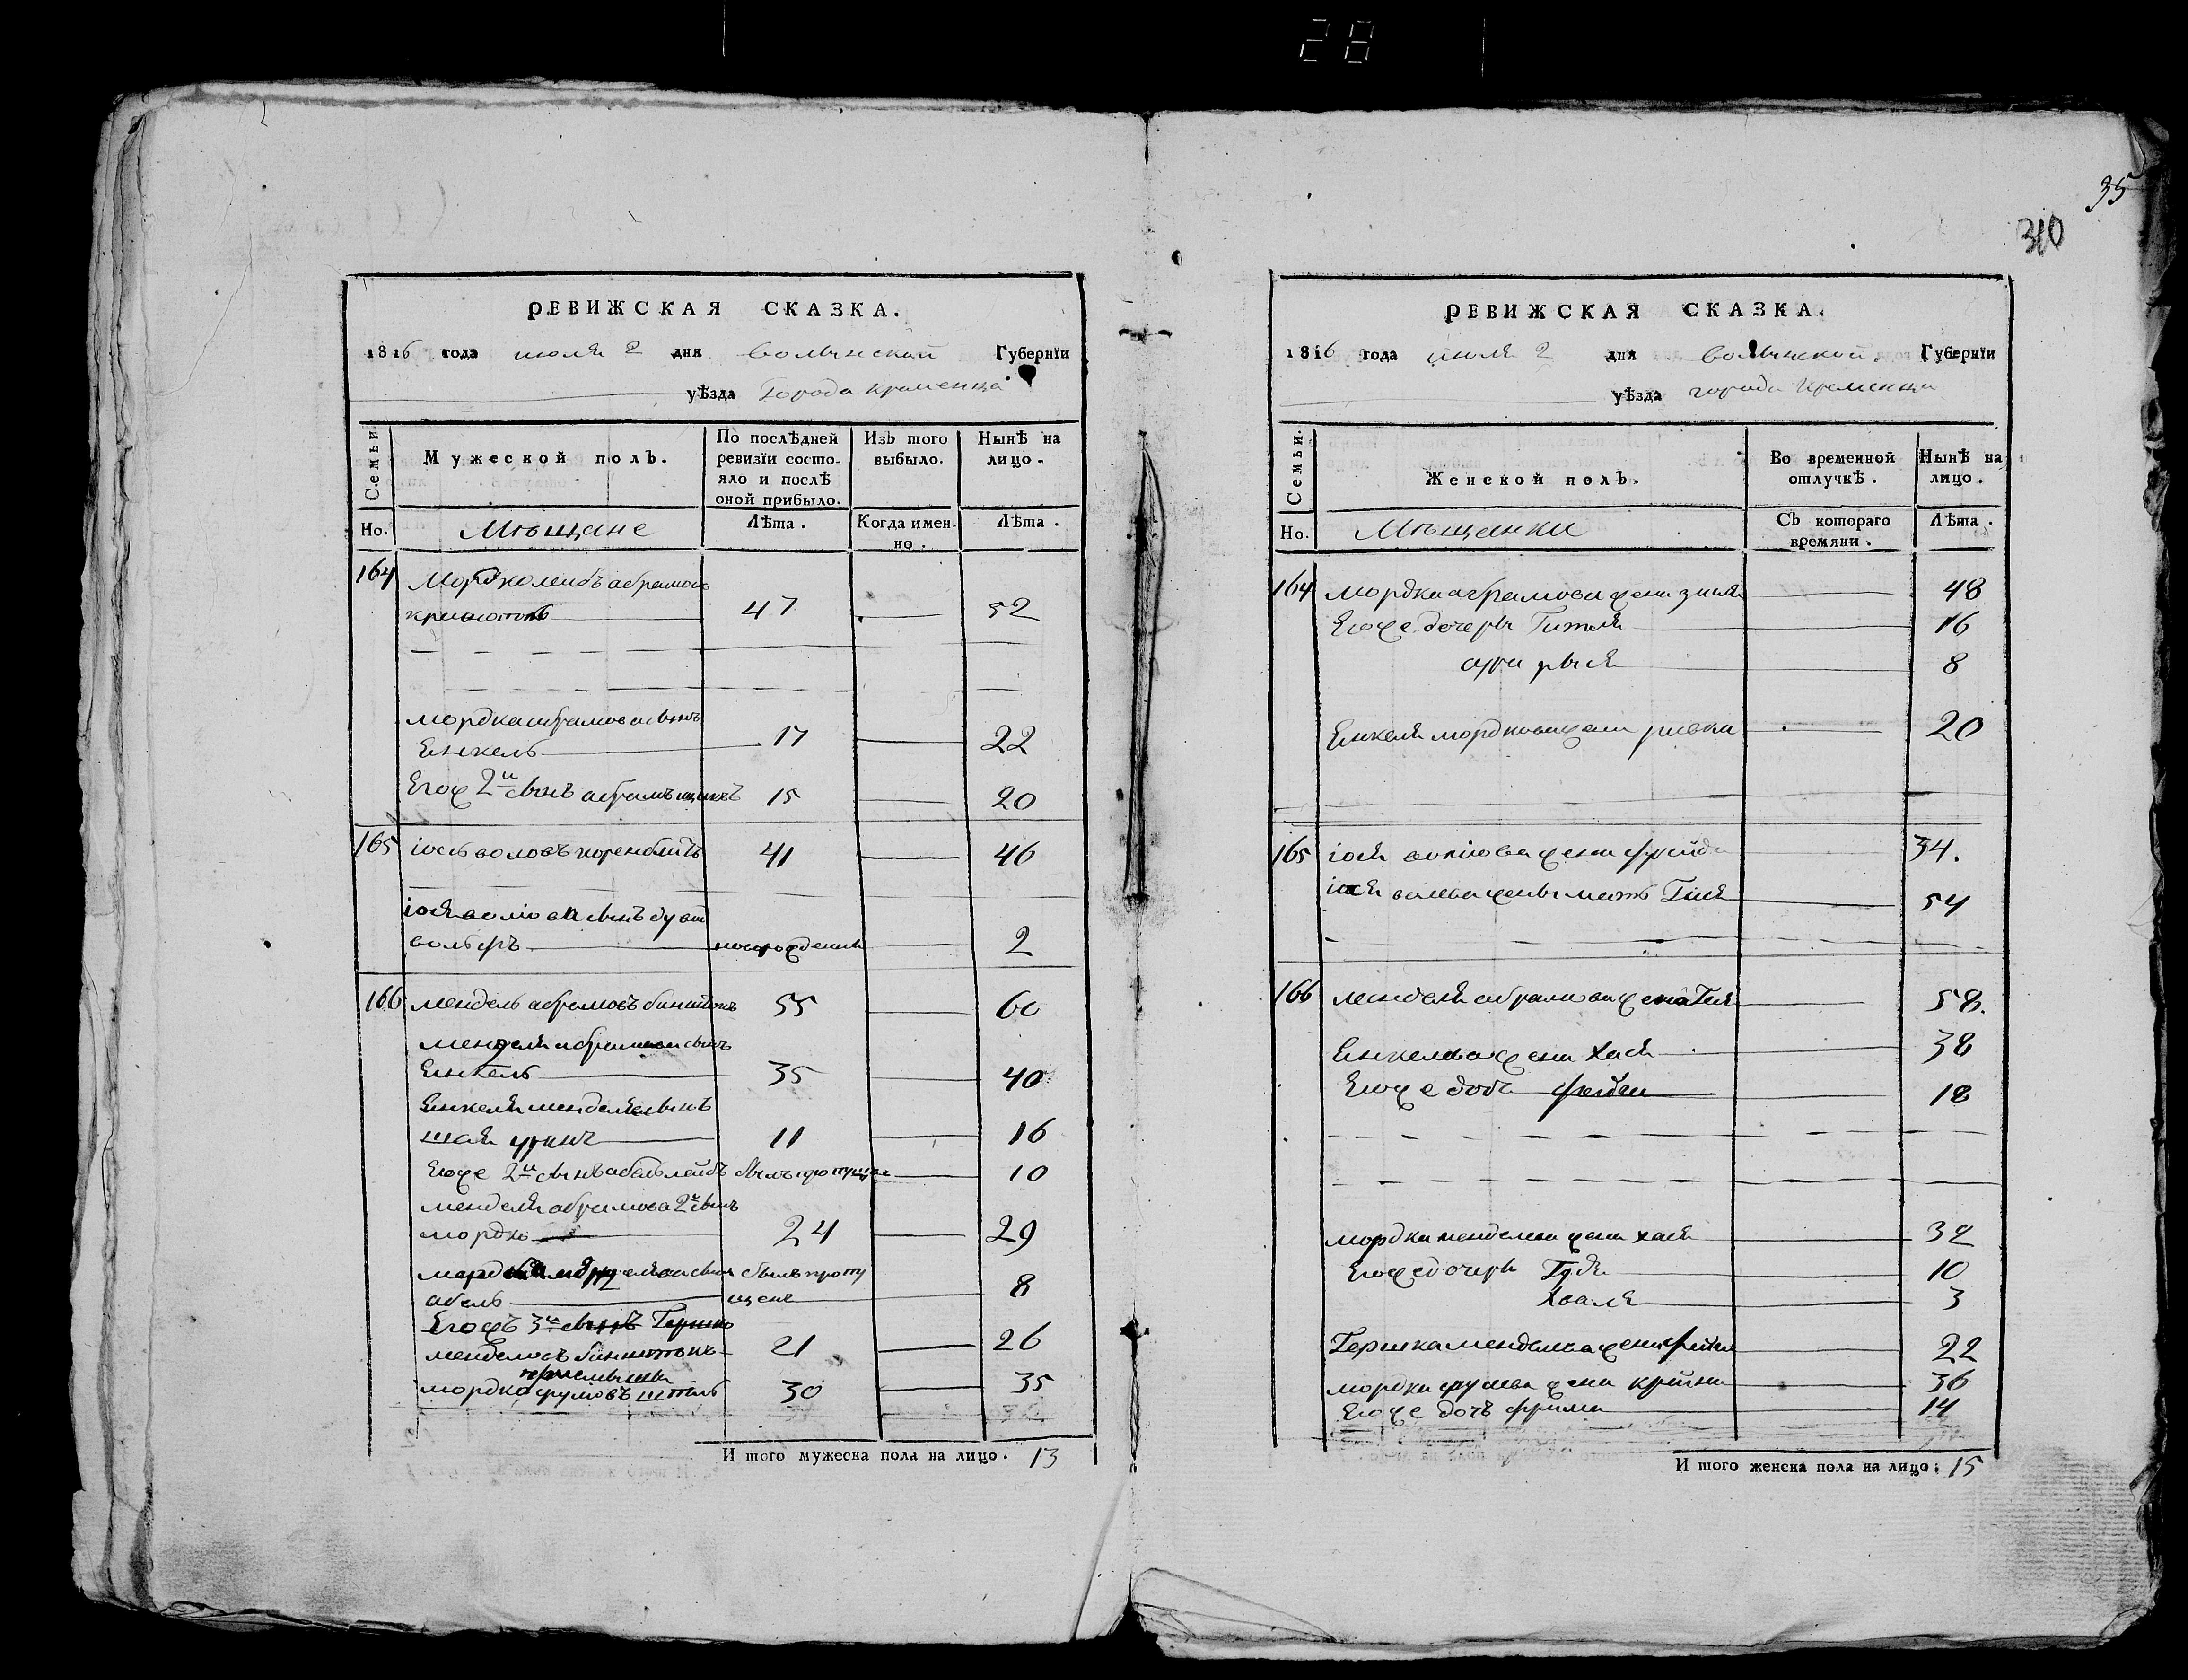 28
35
310
РЕВИЖСКАЯ СКАЗКА.
1816 года июля 2 дня волынской Губернїи
уѣзда Города кременца
Семьи.
Мужеской полЪ.
По послѣдней ревизїи состояло и послѣ оной прибыло.
ИзЪ того выбыло.
НынѢ на лицо.
Но.
Мѣщане
ЛѢта.
Когда именно.
ЛѢта.
164 Мордколейбъ абрамовъ
47 52
мордка абрамова сынъ
Енкель 17 22
Егож 2й сынъ абрамъ ицикъ 15 20
165 іось воловъ коренблитъ 41 46
іося волова сынъ
вольфъ новорожденны 2
166 мендель абрамовъ 55 60
менделя абрамова сынъ
Енкель 35 40
Енкеля менделя сынъ
шая 11 16
Егоже 2й сынъ абель лейбъ былъ пропущ 10
менделя абрамова 2й сынъ
мордко 24 29
сынъ былъ пропу
абель щенъ 8
Егожъ 3й сынъ Гершко
менделовъ 21 26
мордко 30 35
И того мужеска пола на лицо. 13
РЕВИЖСКАЯ СКАЗКА.
1816 года июля 2 дня волынской Губернїи
уѣзда города Кременца
Семьи.
Женской полЪ.
Во временной отлучкѢ.
НынѢ на лицо.
Но.
Мѣщанки
СЪ котораго времяни.
ЛѢта.
164 мордка абрамова жена 48
Егоже дочери Гитля 16
8
Енкеля мордкова жена ривка 20
165 іося волiова жена фрейда 34.
іося волева жены мать 54
166 менделя абрамова жена 58.
Енкелева жена Хася 38
Егоже дочь фейга 18
мордка менделева жена хася 32
Егоже дочери 10
Хваля 3
Гершка менделева жена 22
мордка жена крейна 36
Егоже дочь фрима 14
И того женска пола на лицо: 15